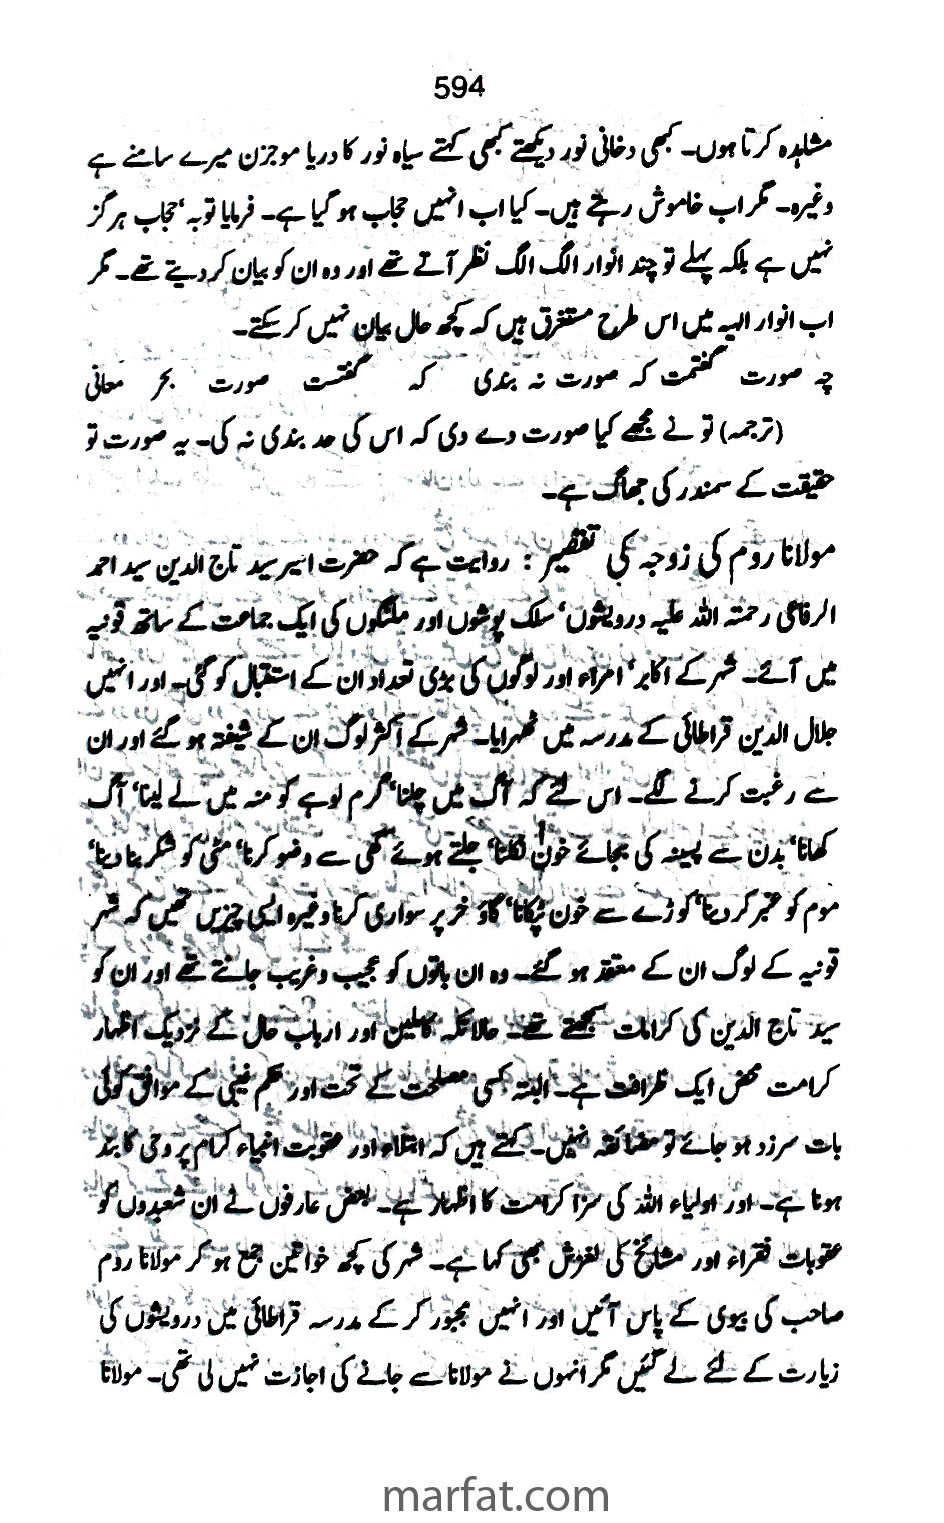 594
مشاہدہ کرتا ہوں۔ کبھی دخانی نور دیکھتے کبھی کہتے سیاہ نور کا دریا موجزن میرے سامنے ہے
وغیرہ۔ مگر اب خاموش رہتے ہیں۔ کیا اب انہیں حجاب ہو گیا ہے۔ فرمایا توبہ‘ حجاب ہرگز
نہیں ہے بلکہ پہلے تو چند انوار الگ الگ نظر آتے تھے اور وہ ان کو بیان کر دیتے تھے۔ مگر
اب انوار الہیہ میں اس طرح مستغرق ہیں کہ کچھ حال بیان نہیں کر سکتے۔
چہ صورت گفتمت کہ صورت نہ بندی کہ صورت بحر معانی
(ترجمہ) تو نے مجھے کیا صورت دے دی کہ اس کی حد بندی نہ کی۔ یہ صورت تو
حقیقت کے سمندر کی جھاگ ہے۔
مولانا روم کی زوجہ کی تقصیر : روایت ہے کہ حضرت اسیر سید تاج الدین سید احمد
الرفاعی رحمتہ اللہ علیہ درویشوں‘ سلک پوشوں اور ملنگوں کی ایک جماعت کے ساتھ قونیہ
میں آئے۔ شہر کے اکابر‘ امراء اور لوگوں کی بڑی تعداد ان کے استقبال کو گئی۔ اور انہیں
جلال الدین قراطائی کے مدرسہ میں ٹھہرایا۔ شہر کے اکثر لوگ ان کے شیفتہ ہو گئے اور ان
سے رغبت کرنے لگے۔ اس لئے کہ آگ میں چلنا‘ گرم لوہے کو منہ میں لے لینا‘ آگ
کھانا‘ بدن سے پسینہ کی بجائے خون نکلنا‘ جلتے ہوئے گھی سے وضو کرنا‘ مٹی کو شکر بنا دینا‘
موم کو عنبر کر دینا‘ کوڑے سے خون ٹپکانا‘ گاؤ خر پر سواری کرنا وغیرہ ایسی چیزیں تھیں کہ شہر
قونیہ کے لوگ ان کے معتقد ہو گئے۔ وہ ان باتوں کو عجیب و غریب جانتے تھے اور ان کو
سید تاج الدین کی کرامات سمجھتے تھے۔ حالانکہ کاملین اور ارباب حال کے نزدیک اظہار
کرامت محض ایک ظرافت ہے۔ البتہ کسی مصلحت کے تحت اور حکم غیبی کے موافق کوئی
بات سرزد ہو جائے تو مضائقہ نہیں۔ کہتے ہیں کہ ابتلاء اور عقوبت انبیاء کرام پر وحی کا بند
ہونا ہے۔ اور اولیاء اللہ کی سزا کرامت کا اظہار ہے۔ بعض عارفوں نے ان شعبدوں کو
عقوبات فقراء اور مشائخ کی لغزش بھی کہا ہے۔ شہر کی کچھ خواتین جمع ہو کر مولانا روم
صاحب کی بیوی کے پاس آئیں اور انہیں مجبور کر کے مدرسہ قراطائی میں درویشوں کی
زیارت کے لئے لے گئیں مگر انہوں نے مولانا سے جانے کی اجازت نہیں لی تھی۔ مولانا
marfat.com